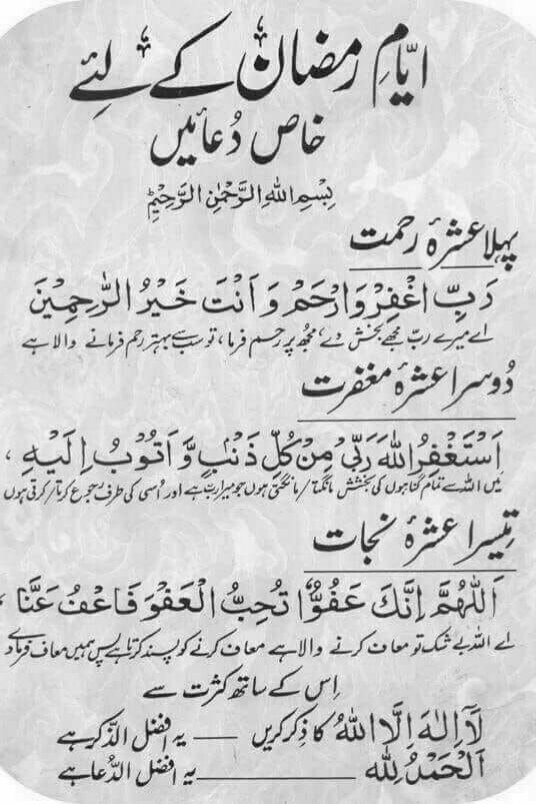 ایّامِ رمضان کے لئے
خاص دُعائیں
بِسْمِ اللهِ الرَّحْمٰنِ الرَّحِیْمِ
پہلا عشرۂ رحمت
رَبِّ اغْفِرْ وَارْحَمْ وَ اَنْتَ خَیْرُ الرّٰحِمِیْنَ
اے میرے رب مجھے بخش دے، مجھ پر رحم فرما، تو سب سے بہتر رحم فرمانے والا ہے
دُوسرا عشرۂ مغفرت
اَسْتَغْفِرُ اللهَ رَبِّیْ مِنْ کُلِّ ذَنْۢبٍ وَّ اَتُوْبُ اِلَیْهِ ،
میں اللہ سے تمام گناہوں کی بخشش مانگتا/مانگتی ہوں جو میرا رب ہے اور اُسی کی طرف رجوع کرتا/کرتی ہوں
تیسرا عشرۂ نجات
اَللّٰهُمَّ اِنَّكَ عَفُوٌّ تُحِبُّ الْعَفْوَ فَاعْفُ عَنَّا ،
اے اللہ بے شک تو معاف کرنے والا ہے معاف کرنے کو پسند کرتا ہے پس ہمیں معاف فرما دے
اِس کے ساتھ کثرت سے
لَآ اِلٰهَ اِلَّا اللهُ کا ذکر کریں — یہ افضل الذّکر ہے
اَلْحَمْدُ لِلّٰه — یہ افضل الدُّعا ہے